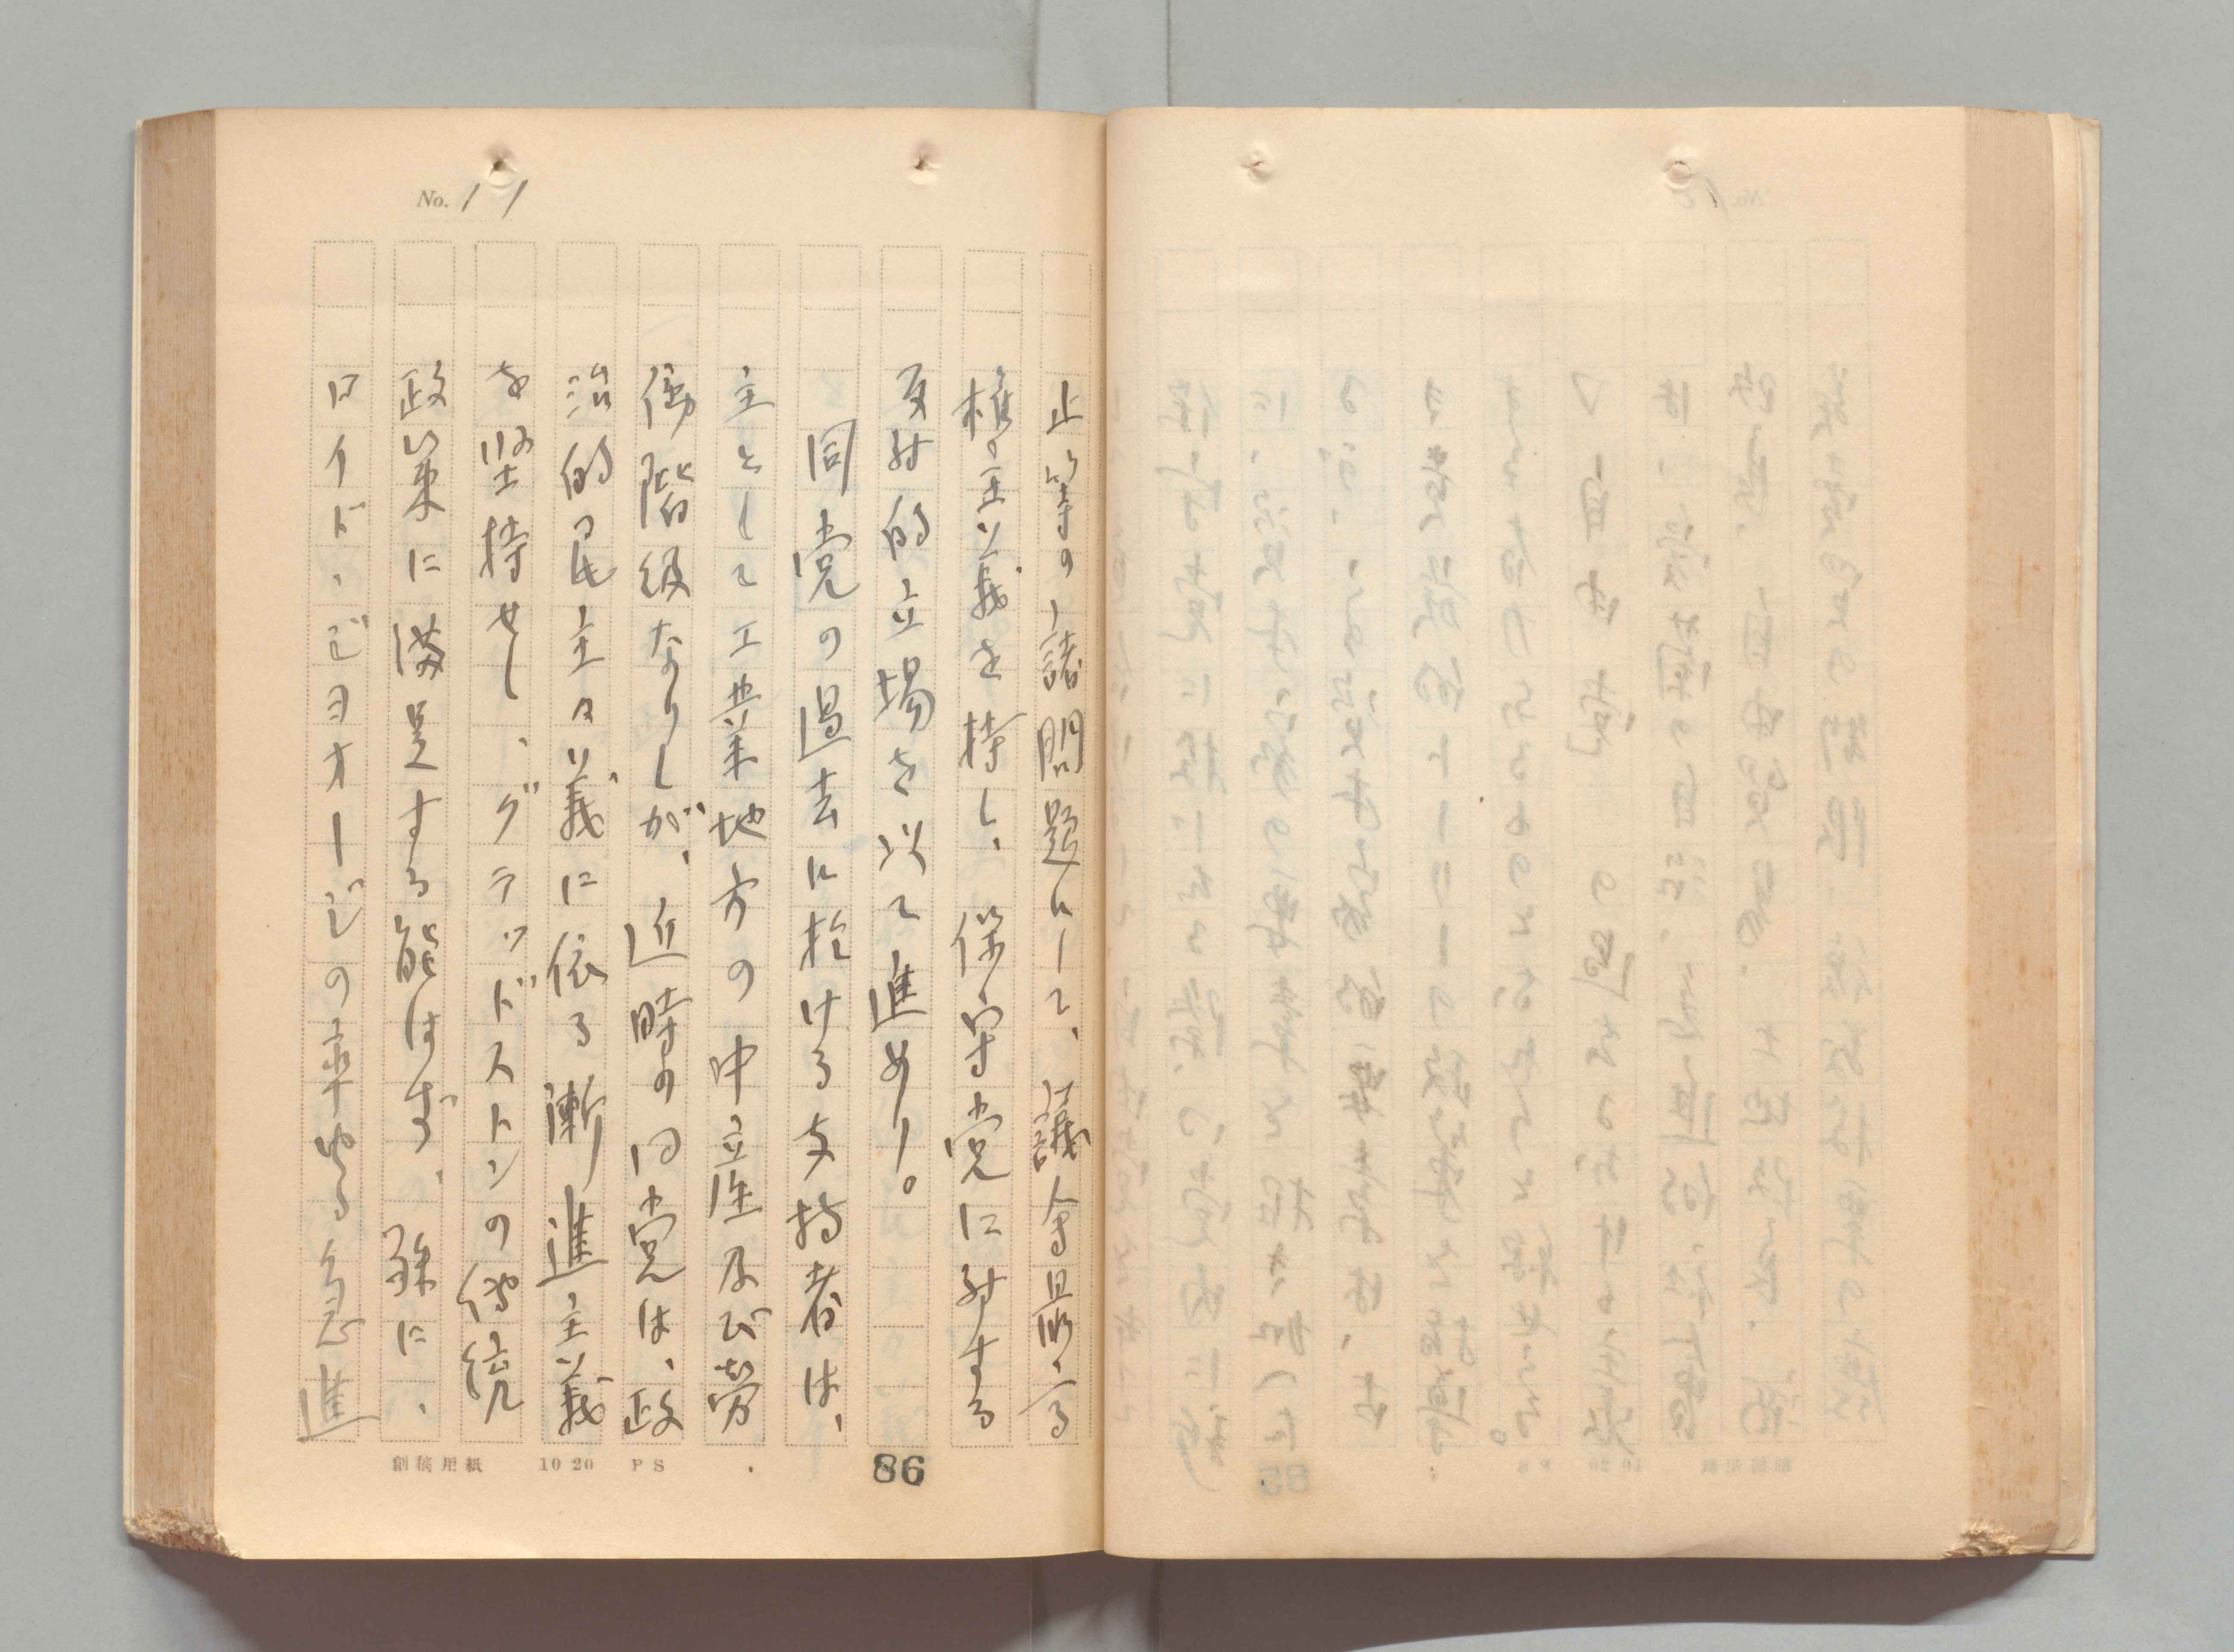 No. 11
止等の諸問題にして、議会最高
権の主義を持し、保守党に対する
反対的立場を以て進めり。
同党の過去に於ける支持者は、
主として工業地方の中立性及び労
働階級なりしが、近時の同党は、政
治的民主々義に依る漸進主義
を堅持せし、グラッドストンの伝統
政策に満足する能はず、殊に、
ロイド・ジヨオージの率ゆる急進
創稿用紙 10 20 PS
86